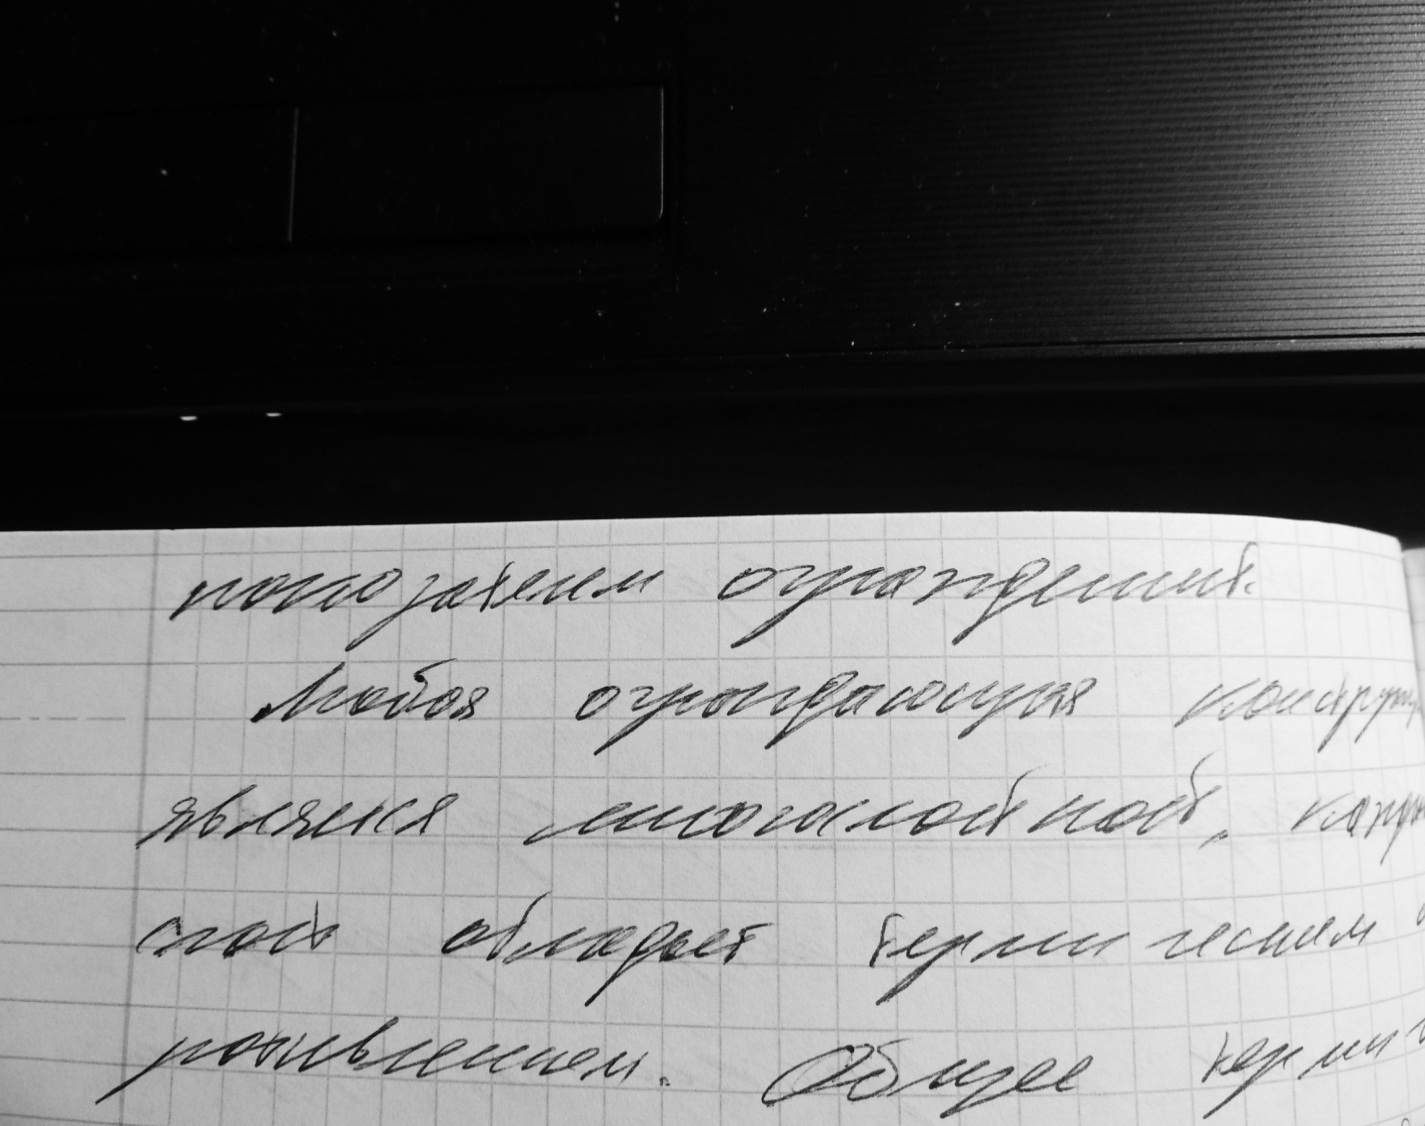 показателем ограждения.
Любая ограждающая констру
является многослойной,
слой обладает термическим
Общее терми